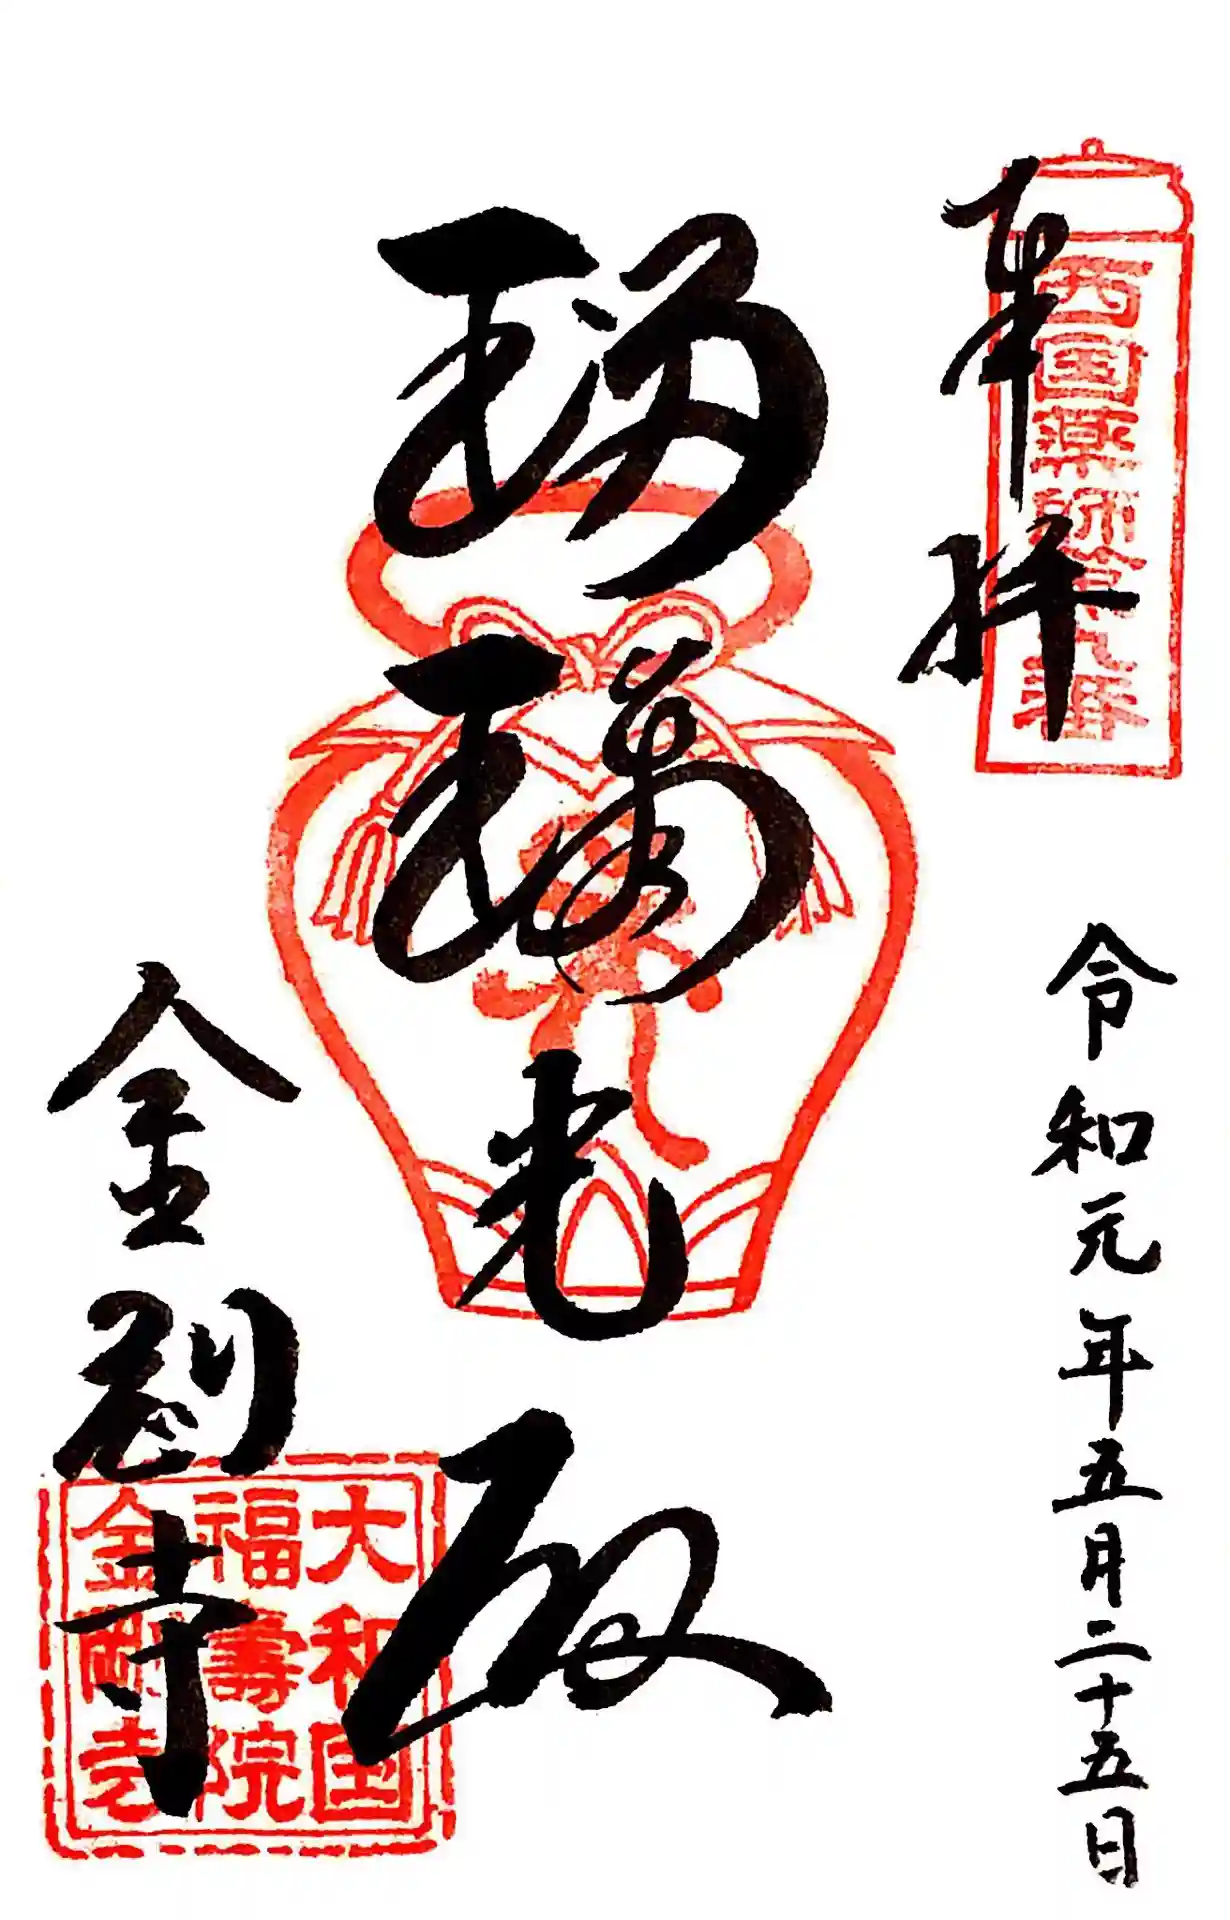 奉拝
西国薬師第九番
令和元年五月二十五日
瑠璃光殿
金剛寺
大和国
福壽院
金剛寺